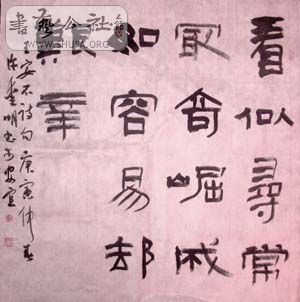 看似尋常
最奇崛成
如容易却
艱辛
王安石詩句庚寅仲春
公社
WWW.SHUFA.ORG